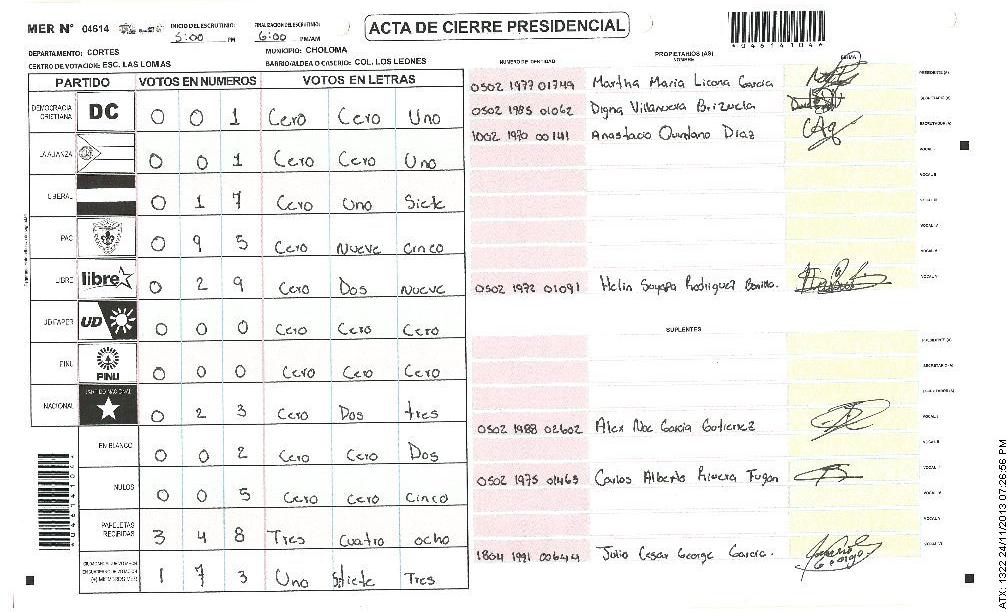 MER N° 04614
INICIO DEL ESCRUTINIO: 5:00 PM
FINALIZACION DEL ESCRUTINIO: 6:00 PM/AM
ACTA DE CIERRE PRESIDENCIAL
DEPARTAMENTO: CORTES
MUNICIPIO: CHOLOMA
CENTRO DE VOTACION: ESC. LAS LOMAS
BARRIO/ALDEA O CASERIO: COL. LOS LEONES
PARTIDO VOTOS EN NUMEROS VOTOS EN LETRAS
DEMOCRACIA CRISTIANA DC 0 0 1 Cero Cero Uno
LA ALIANZA 0 0 1 Cero Cero Uno
LIBERAL 0 1 7 Cero Uno Siete
PAC 0 9 5 Cero Nueve Cinco
LIBRE libre 0 2 9 Cero Dos Nueve
UD/FAPER UD 0 0 0 Cero Cero Cero
PINU PINU 0 0 0 Cero Cero Cero
NACIONAL PARTIDO NACIONAL 0 2 3 Cero Dos tres
EN BLANCO 0 0 2 Cero Cero Dos
NULOS 0 0 5 Cero Cero Cinco
PAPELETAS RECIBIDAS 3 4 8 Tres Cuatro ocho
(+) MIEMBROS MER 1 7 3 Uno Siete Tres
NUMERO DE IDENTIDAD
PROPIETARIOS (AS)
NOMBRE
FIRMA
0502 1977 01749 Martha Maria Licona Garcia PRESIDENTE (A)
0502 1985 01062 Digna Villanueva Brizuela SECRETARIO (A)
1002 1970 00141 Anastacio Quintano Diaz ESCRUTADOR (A)
VOCAL I
VOCAL II
VOCAL III
VOCAL IV
VOCAL V
0502 1972 01091 Helin Soyapa Rodriguez Bonilla. VOCAL VI
SUPLENTES
PRESIDENTE (A)
SECRETARIO (A)
ESCRUTADOR (A)
0502 1988 02602 Alex Noe Garcia Gutierrez VOCAL I
VOCAL II
0502 1975 01465 Carlos Alberto Rivera Fugon
VOCAL IV
VOCAL V
1804 1991 00644 Julio Cesar George Garcia. VOCAL VI
ATX: 1322 24/11/2013 07:26:56 PM